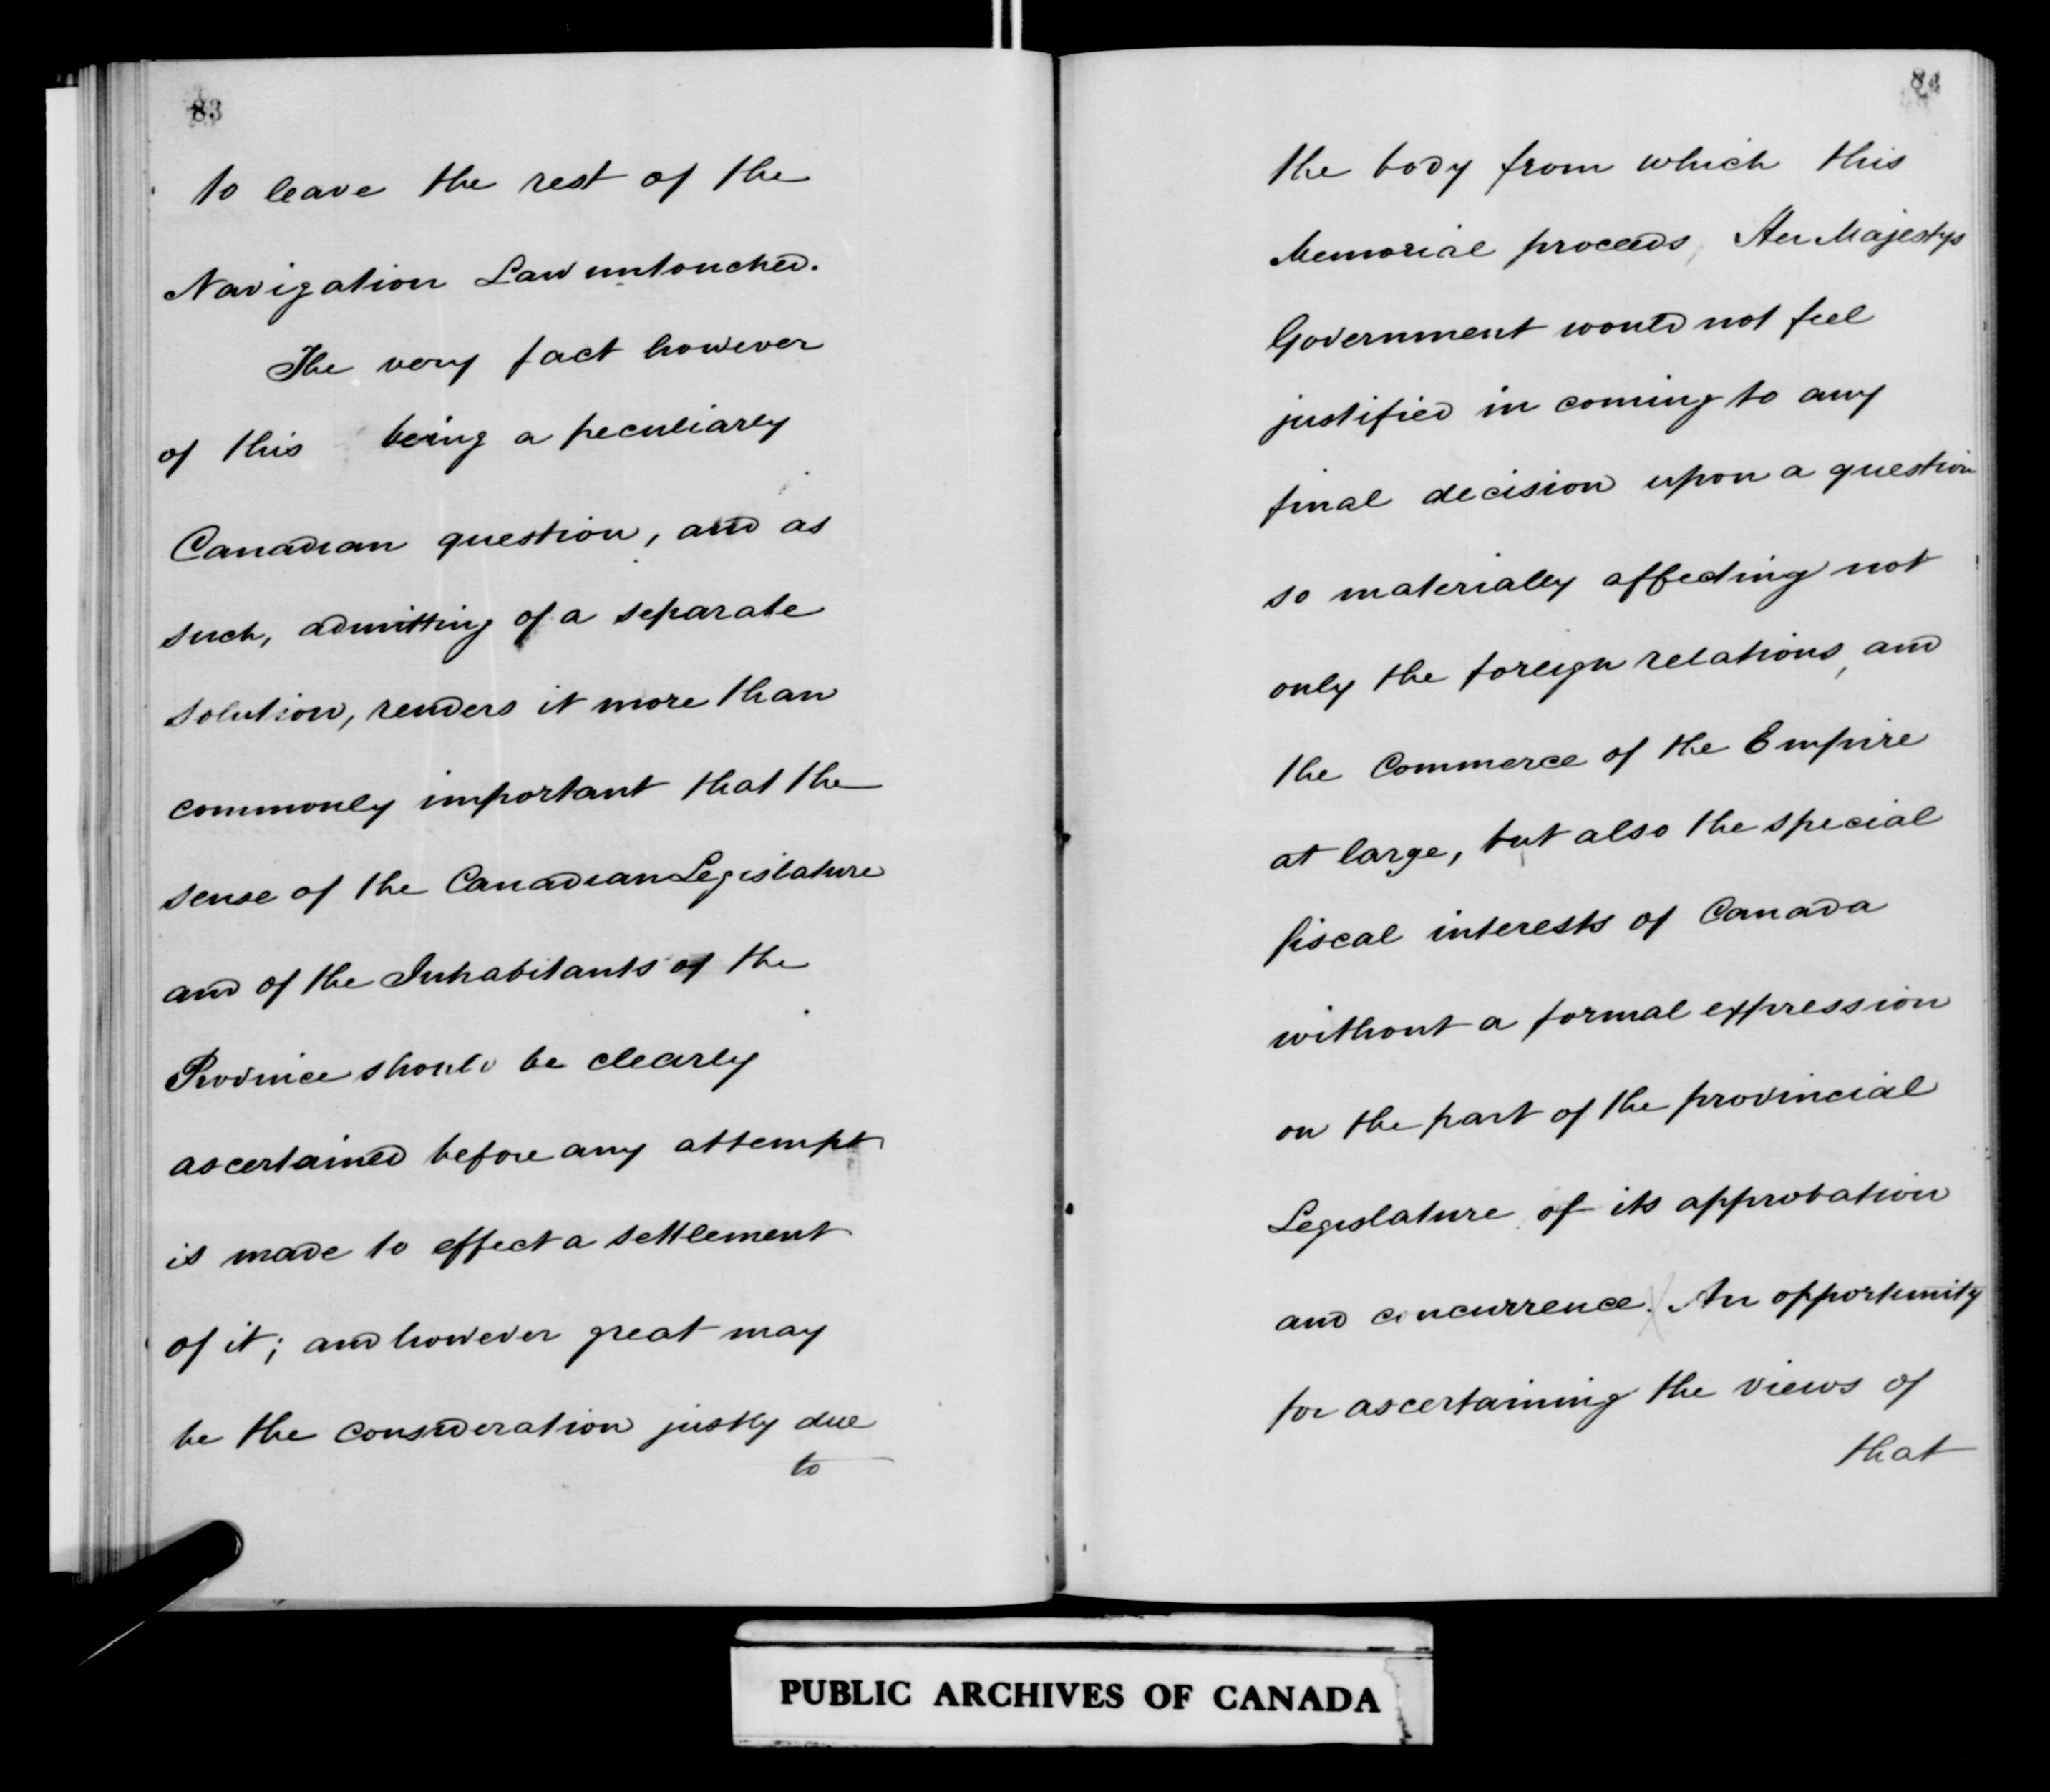 83
to leave the rest of the
Navigation Law untouched.
The very fact however
of this being a peculiarly
Canadian question, and as
such, admitting of a separate
solution, renders it more than
commonly important that the
sense of the Canadian Legislature
and of the Inhabitants of the
Province should be clearly
ascertained before any attempt
is made to effect a settlement
of it; and however great may
be the consideration justly due
to
84
the body from which this
Memorial proceeds, Her Majestys
Government would not feel
justified in coming to any
final decision upon a question
so materially affecting not
only the foreign relations, and
the Commerce of the Empire
at large, but also the special
fiscal interests of Canada
without a formal expression
on the part of the provincial
Legislature of its approbation
and concurrence. An opportunity
for ascertaining the views of
that
PUBLIC ARCHIVES OF CANADA